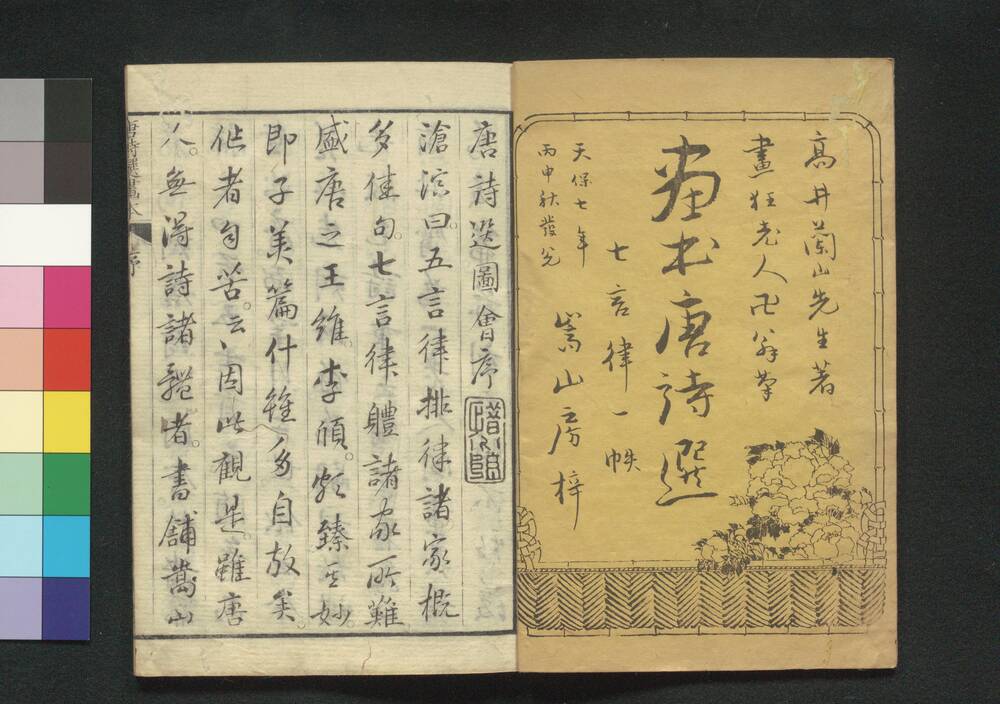 高井蘭山先生著
畫狂老人卍翁筆
画本唐詩選
七言律一帙
天保七年
丙申秋發兌
嵩山房梓
唐詩選圖會序
滄溟曰。五言律排律諸家概
多佳句。七言律體諸家所難
盛唐之王維。李頎。頗臻其妙。
即子美篇什雖多自放矣。
作者自苦。云〻因此觀是。雖唐
人。無得詩諸體者。書舗嵩山
唐詩選畫本
序